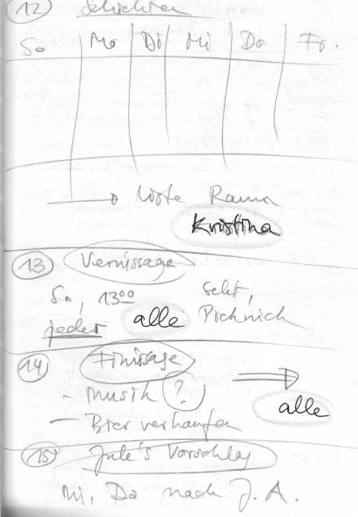 12 Schichten
So Mo Di Mi Do Fr.
Liste Raum
Kristina
13 Vernissage
So, 13 00 Sekt,
jeder alle Picknick
14 Finissage
- Musik (?)
alle
- Bier verkaufen
15 Jule's Vorschlag
Mi, Do nach J. A.